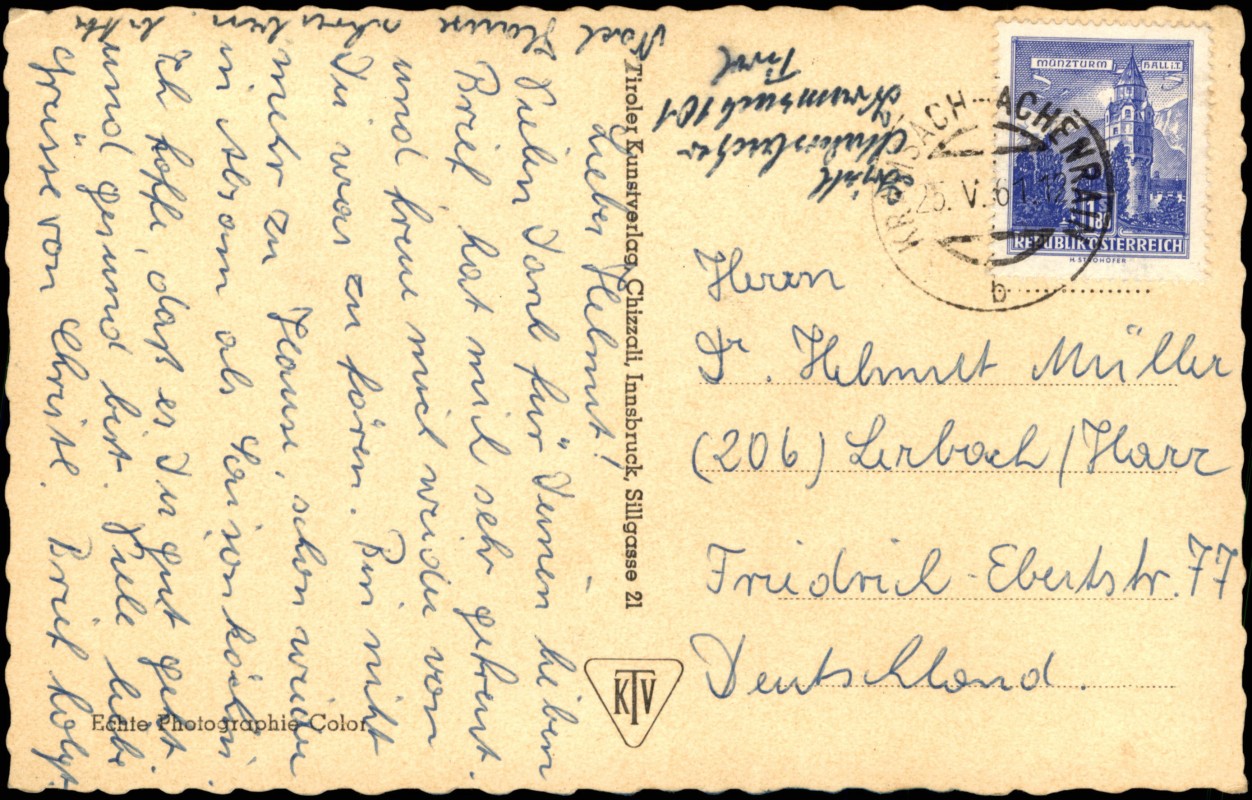 Lieber Helmut!
Vielen Dank für Deinen lieben
Brief hat mich sehr gefreut.
und freue mich wieder von
Dir was zu hören. Bin nicht
mehr zu Hause, schon wieder
in Absam als Saisonköchin
Ich hoffe, daß es Dir gut geht
und gesund bist. Viele liebe
Grüsse von Christl. Brief folgt.
Nach Hause
schreiben
bitte
Tiroler Kunstverlag Chizzali, Innsbruck, Sillgasse 21
Kramsach 101
Tirol
MÜNZTURM HALL i.T.
1.80
REPUBLIK ÖSTERREICH
H. STROHOFER
KRAMSACH-ACHENRAIN
25. V. 61. 12
b
Herrn
Dr. Helmut Müller
(206) Lerbach / Harz
Friedrich-Ebertstr. 77
Deutschland.
KTV
Echte Photographie Color